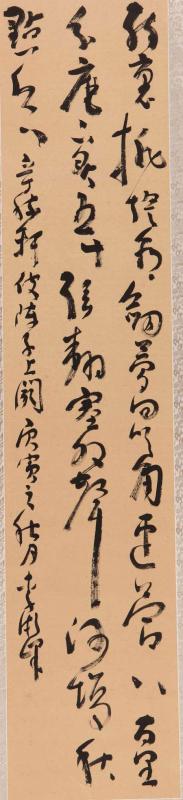 醉裏挑燈看劍夢回吹角連營八百里
分麾下炙五十弦翻塞外聲沙場秋
點兵 辛稼軒破陣子上闋庚寅之秋月李